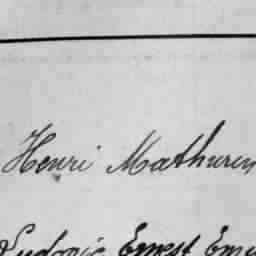 Henri Mathurin
Ludovic Ernest Em